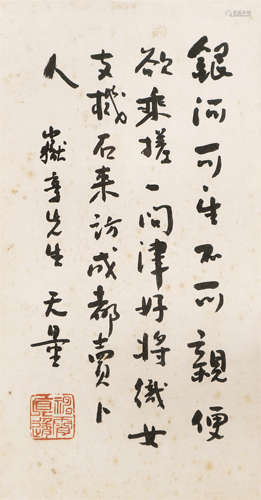 銀河可望不可親便
欲乘槎一問津好將織女
支機石来訪成都賣卜
人
嶽先生 无量